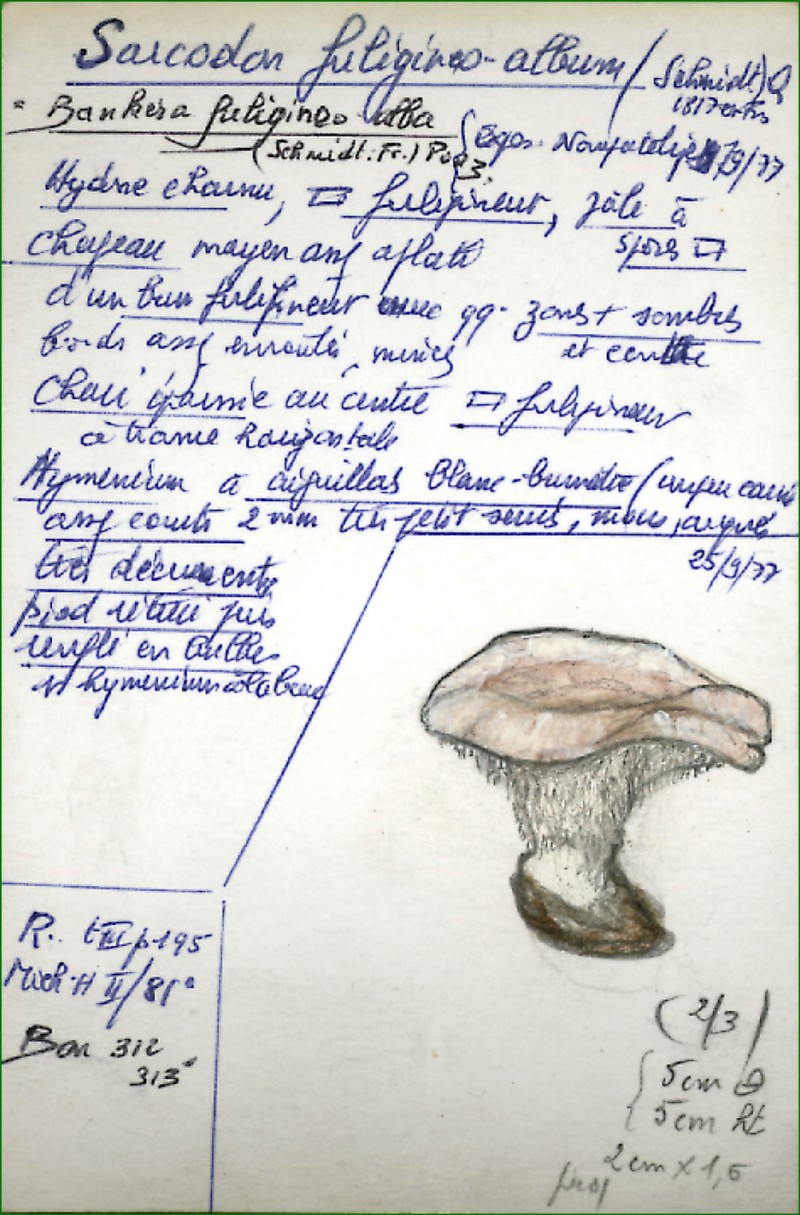 Sarcodon fuligineo-album (Schmidt) Q
1817
Bankera fuligineo-alba
(Schmidt: Fr.) Pouz.
Expos. 19/77
Hydne charnu, □ fuligineux, pâle à
spores □
chapeau moyen assez aplati
d'un brun fuligineux avec qq. zones + sombres
bords assez enroulés, minces
et centre
Chair épaisse au centre □ fuligineux
à trame horizontale
Hymenium à aiguillons blanc-bunâtre (un peu
assez courts 2 mm très petit serrés, mous,
très décurrents
25/9/77
pied rétréci puis
renflé en bulbe
hymenium
R. t III p 195
Mich. H II/81°
Bon 312
313
(2/3)
5 cm ⌀
5 cm ht
2 cm x 1,5